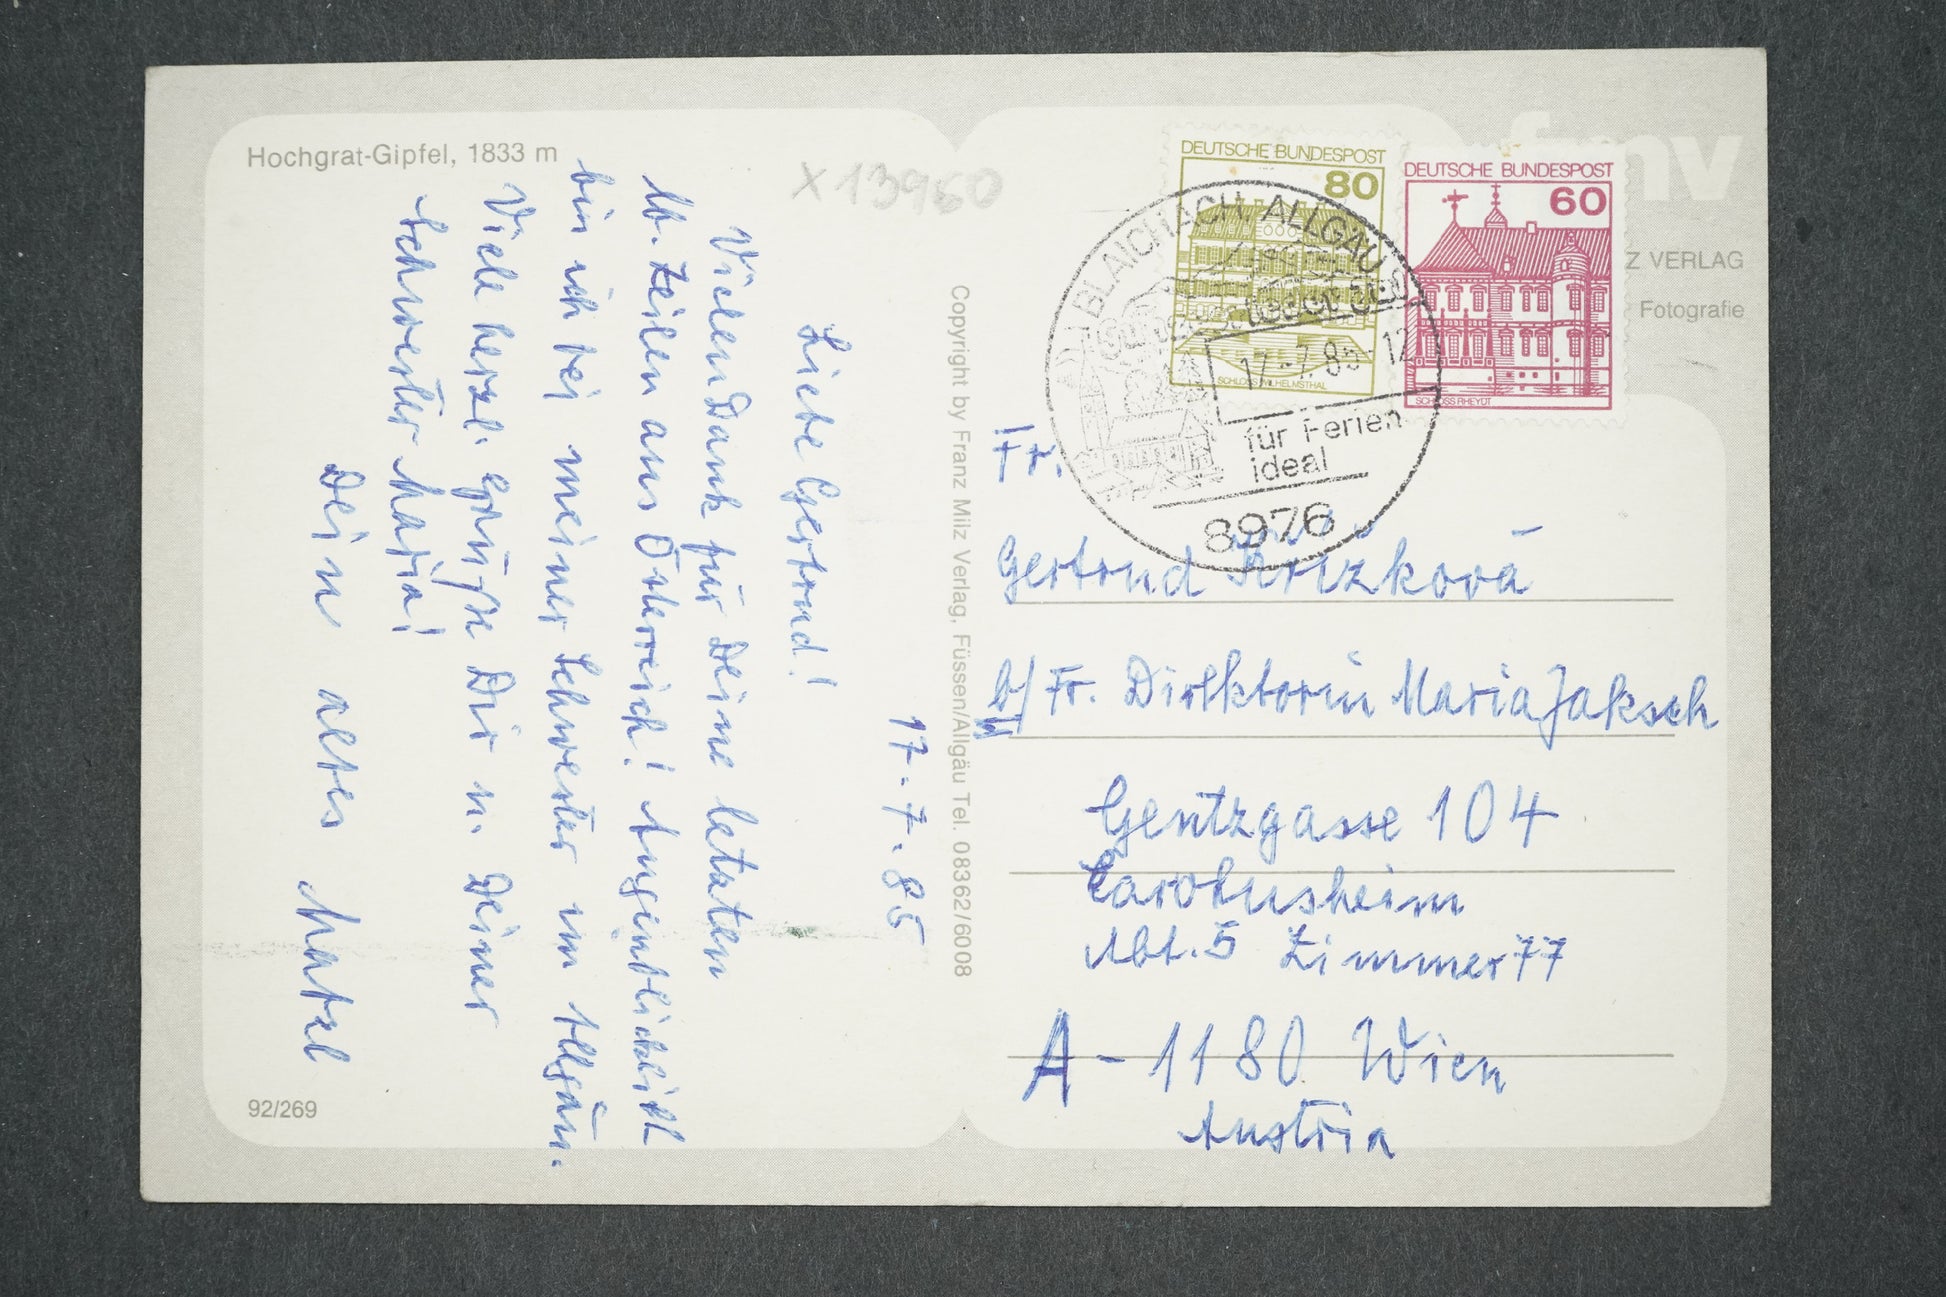 Hochgrat-Gipfel, 1833 m
x 13960
17.7.85
Liebe Gertrud!
Vielen Dank für Deine letzten
lb. Zeilen aus Österreich! Augenblicklich
bin ich bei meiner Schwester im Allgäu.
Viele herzl. Grüße Dir u. Deiner
Schwester Maria!
Dein altes
92/269
Copyright by Franz Milz Verlag, Füssen/Allgäu Tel. 08362/6008
fmv
Z VERLAG
Fotografie
DEUTSCHE BUNDESPOST
80
SCHLOSS WILHELMSTHAL
DEUTSCHE BUNDESPOST
60
SCHLOSS RHEYDT
BLAICHACH, ALLGÄU
17.-7.85-12
für Ferien
ideal
8976
Fr.
Gertrud Křížková
b/ Fr. Direktorin Maria Jaksch
Gentzgasse 104
Carolusheim
Abt. 5 Zimmer 77
A-1180 Wien
Austria